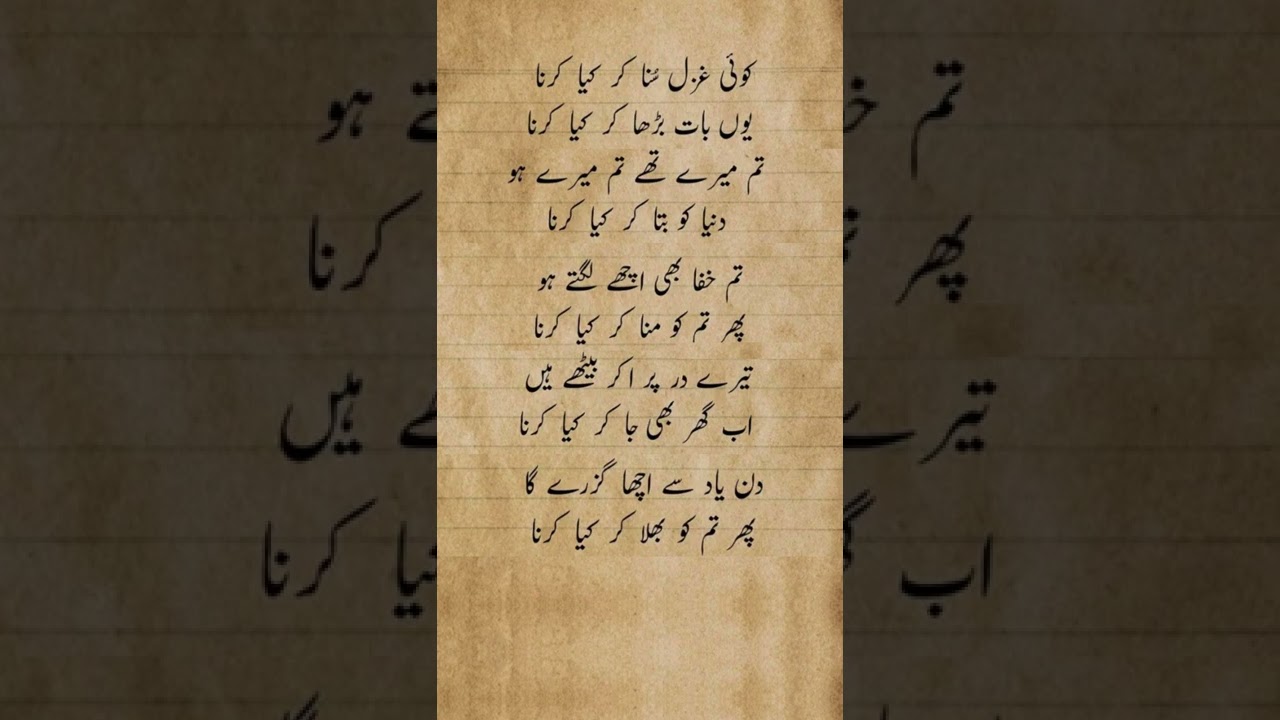 کوئی غزل سُنا کر کیا کرنا
یوں بات بڑھا کر کیا کرنا
تم میرے تھے تم میرے ہو
دنیا کو بتا کر کیا کرنا
تم خفا بھی اچھے لگتے ہو
پھر تم کو منا کر کیا کرنا
تیرے در پر اکر بیٹھے ہیں
اب گھر بھی جا کر کیا کرنا
دن یاد سے اچھا گزرے گا
پھر تم کو بھلا کر کیا کرنا